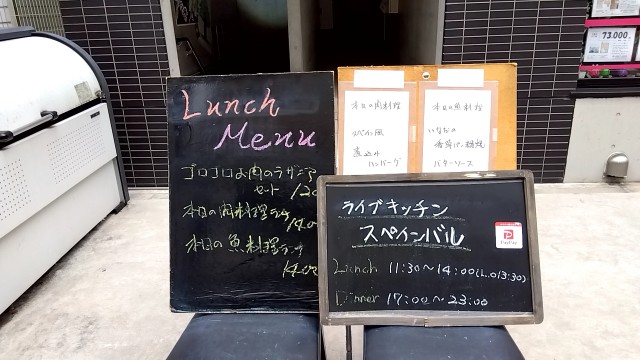 Lunch
Menu
ゴロゴロお肉のラザニア
セット
本日の肉料理ランチ
本日の魚料理ランチ
本日の肉料理
スペイン風
煮込み
ハンバーグ
本日の魚料理
バターソース
ライブキッチン
スペインバル
Lunch 11:30〜14:00(L.O13:30)
Dinner 17:00〜23:00
PayPay
73,000